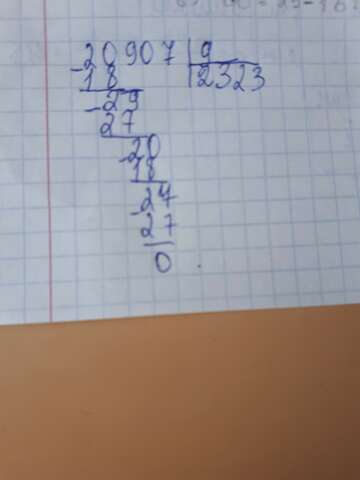 20907 | 9
-18 | 2323
-29
27
-20
18
-27
27
0